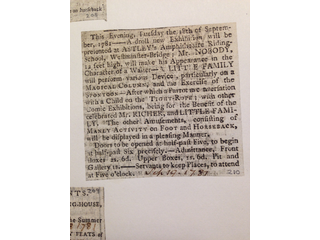 208
This Evening, Tuesday the 18th of Septem-
ber, 1781—A droll new Exhibition will be
presented at ASTLEY's Amphitheatre Riding-
School, Westminster-Bridge; Mr. NOBODY,
12 feet high, will make his Appearance in the
Character of a Waiter—A LITTLE FAMILY
will perform various Devices, particularly on a
MAGICAL COLUMN, and an Exercise of the
After which Pastor
with a Child on the TIGHT-ROPE; with other
Comic Exhibitions, being for the Benefit of the
celebrated Mr. RICHER, and LITTLE FAMI-
LY. The other Amusements, consisting of
MANLY ACTIVITY on FOOT and HORSEBACK,
will be displayed in a pleasing Manner.
Doors to be opened at half-past Five, to begin
at half-past Six precisely.—Admittance, Front
Boxes 2s. 6d. Upper Boxes, 1s. 6d. Pit and
Gallery 1s.—Servants to keep Places, to attend
at Five o'clock. 1781 210
ING-HOUSE,
the Summer
1781
FEATS of